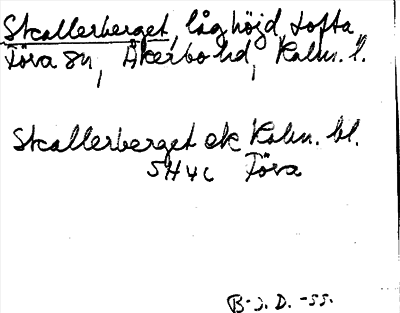 Skallerberget, låg höjd, Tofta,
Töva sn, Åkerbo hd, Kalm. l.
Skallerberget ek Kalm. bl.
5H4c Töva
B. J. D. -55.